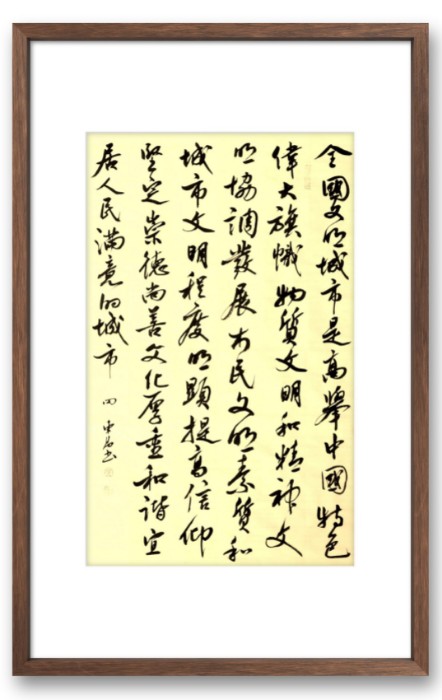 全國文明城市是高舉中國特色
偉大旗幟物質文明和精神文
明協調發展市民文明素質和
城市文明程度明顯提高信仰
堅定崇德尚善文化厚重和諧宜
居人民滿意的城市